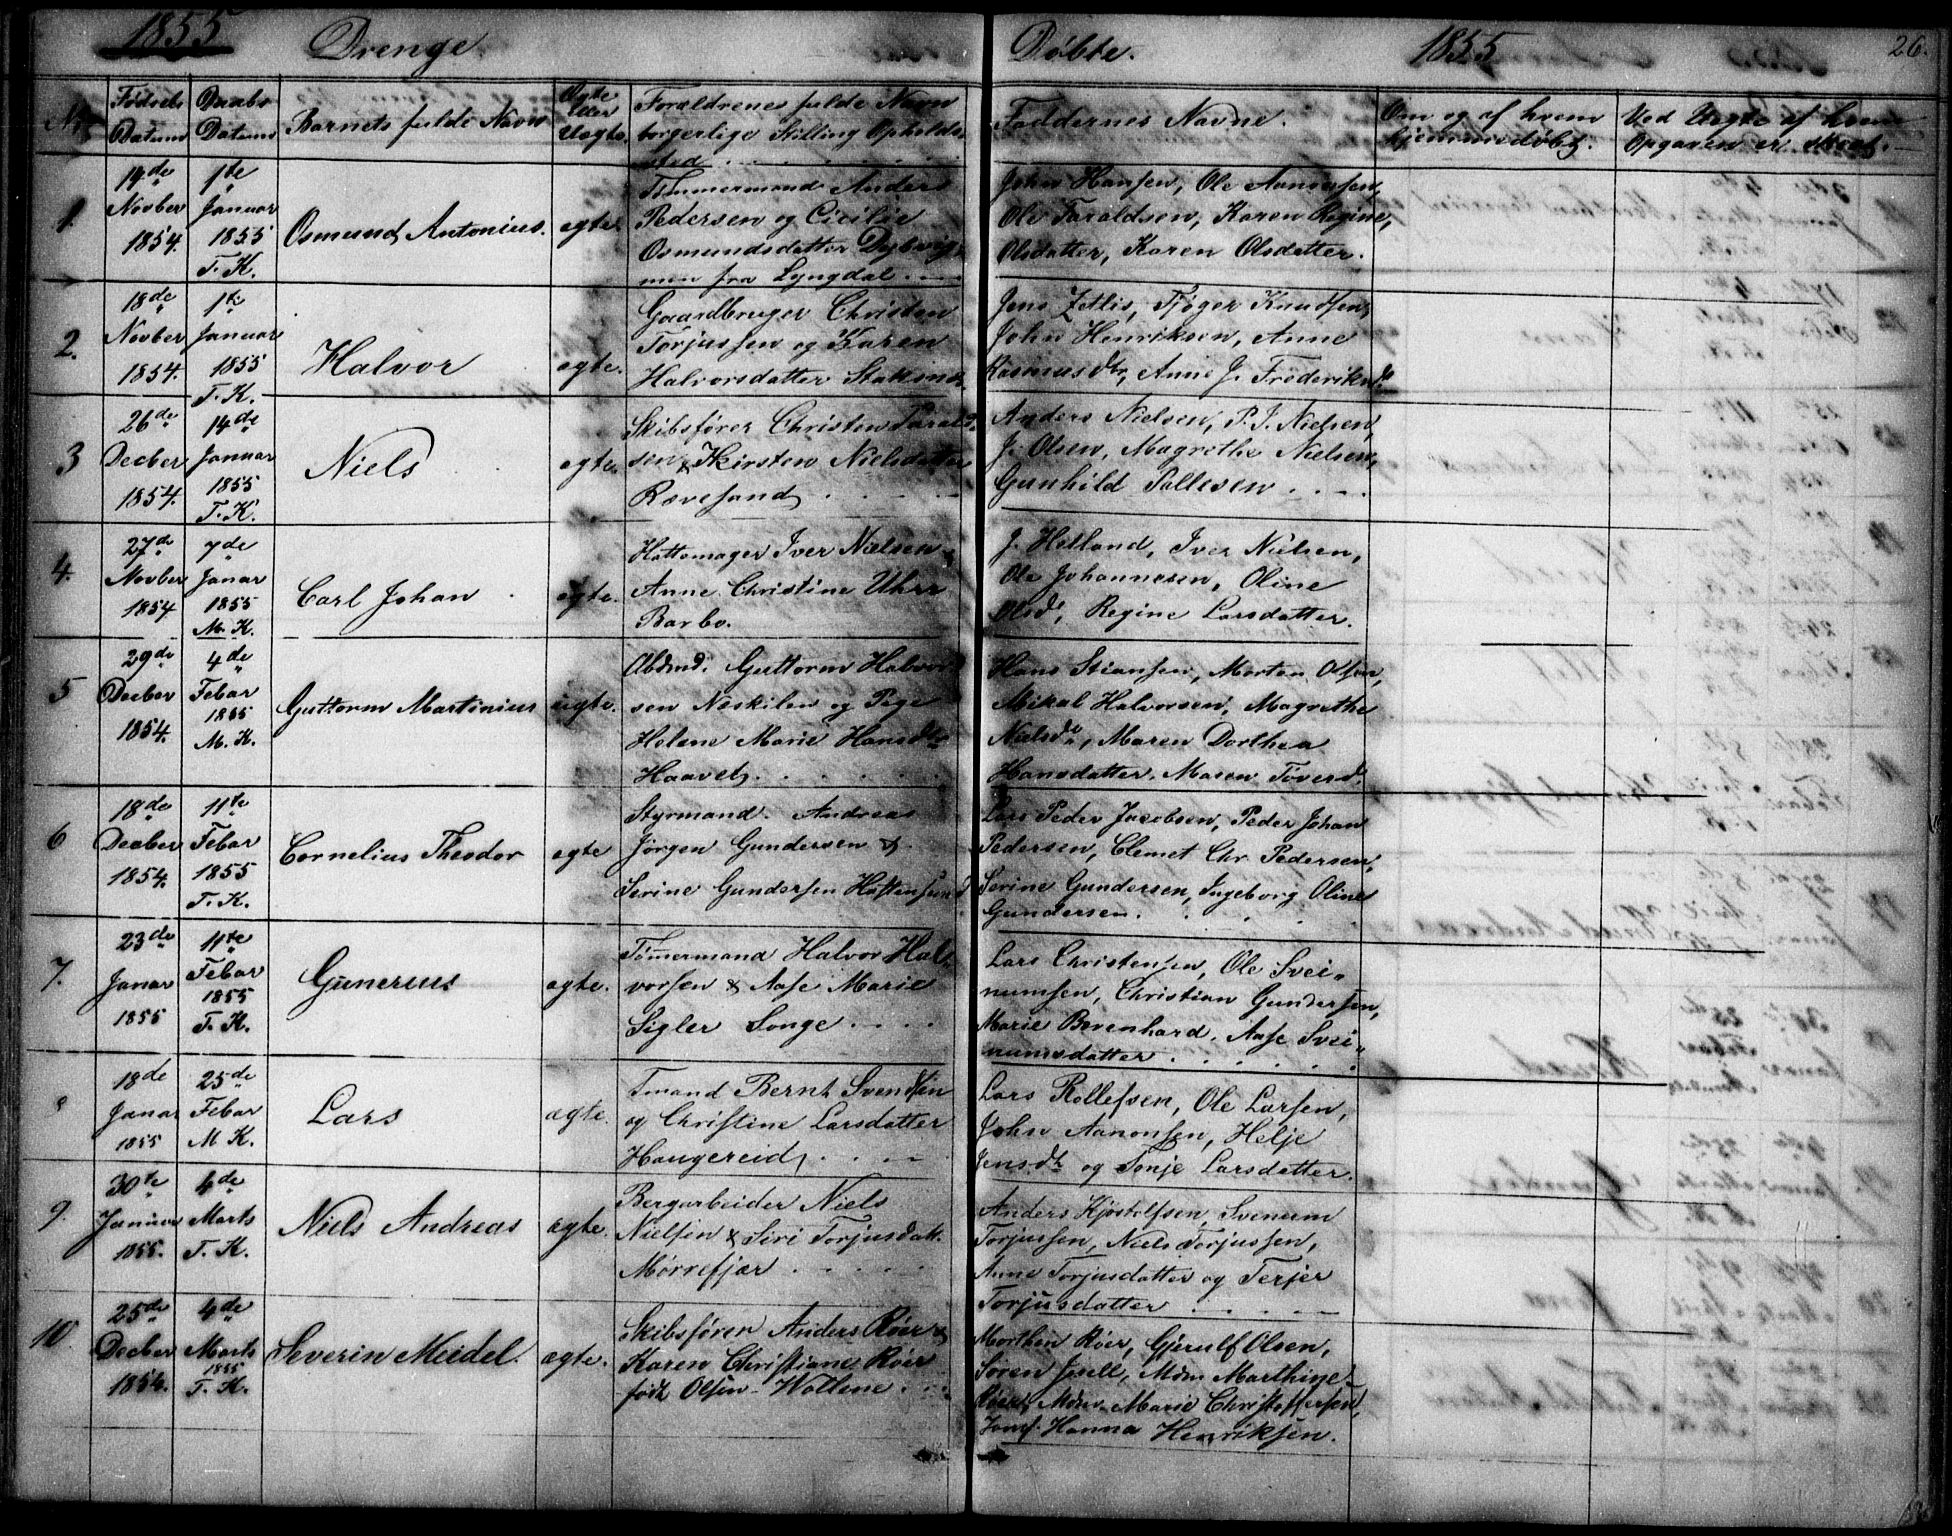 1855 Drenge. Døbte. 1855 26.
No Fødsels Datum
Daabs Datum
Barnets fulde Navn
Ægte eller Uægte.
Forældrenes fulde Navn
borgerlige Stilling Opholds
sted
Faddernes Navne.
Om og af hvem
hjemmedøbt.
Ved Uægte af hvem
Opgaven er skeet.
1.
14de Novber 1854.
1te Januar 1855 T. K.
Osmund Antonius.
ægte.
Tømmermand Anders
Pedersen og Cicilie
Osmundsdatter
men fra Lyngdal.
John Hansen, Ole Aanessen,
Ole Taraldsen, Karen Regine,
Olsdatter, Karen Olsdatter.
2.
18de Novber 1854.
1te Januar 1855 T. K.
Halvor
ægte.
Gaardbruger Christen
Torjussen og Karen
Halvorsdatter
Jens Zetlis, Tjøger Knudsen,
John Henriksen, Anne
Rasmusdtr, Anne J. Frederiksdr
3
26de Decber 1854.
14de Januar 1855 T. K.
Niels
ægte.
Skibsfører Christen Tarald
sen & Kirsten Nielsdatter
Rævesand
Anders Nielsen, P. J. Nielsen,
J. Olsen, Magrethe Nielsen,
Gunhild Pallesen
4.
27de Novber 1854
7de Janar 1855 M. K.
Carl Johan
ægte.
Hattemager Iver Nielsen,
Anne Christine Uhrr
Barbo.
J. Helland, Iver Nielsen,
Ole Johannesen, Oline
Olsdr, Regine Larsdatter.
5
29de Decber 1854.
4de Febar 1855 M. K.
Guttorm Martinius
uægte.
Ubdmd. Guttorm Halvor
sen Neskilen og Pige
Helene Marie Hansdtr
Haavet
Hans Stiansen, Morten Olsen,
Mikal Halvorsen, Magrethe
Nielsdr, Maren Dorthea
Hansdatter. Maren Toversdr
6
18de Decber 1854.
11te Febar 1855 T. K.
Cornelius Theodor
ægte
Styrmand. Andreas
Jørgen Gundersen &
Serine Gundersen Hattensund
Lars Peder Jacobsen, Peder Johan
Pedersen, Clemet Chr. Pedersen,
Serine Gundersen, Ingeborg Oline
Gundersen.
7.
23de Janar 1855
11te Febar 1855 T. K.
Gunerius
ægte.
Tømmermand Halvor Hal-
vorsen & Aase Marie
Sigler Songe
Lars Christensen, Ole Svei-
numsen, Christian Gundersen,
Marie Berenhard, Aase Svei-
numsdatter
8
18de Janar 1855
25de Febar M K.
Lars
ægte.
Tmand Bernt Svendsen
og Christine Larsdatter
Haugereid
Lars Rollefsen, Ole Larsen,
John Aanonsen, Helje
Jensdr og Tonje Larsdatter.
9.
30te Januar 1855.
4de Marts T. K.
Niels Andreas
ægte.
Bergarbeider Niels
Nielsen & Siri Torjusdatt.
Mørrefjær
Anders Kjostolfsen, Svenum
Torjussen, Niels Torjussen,
Anne Torjusdatter og Terjer
Torjusdatter
10.
25de Decber 1854.
4de Marts 1855 T. K.
Severin Meidel.
ægte.
Skibsføren Anders Röer &
Karen Christiane Röer
født Olsen - Wollene.
Morthen Röer, Gjerulf Olsen,
Søren Jsell, Mdm Marthine
Röer, Mdm. Marie Christoffersen,
Jomf. Hanna Henriksen.